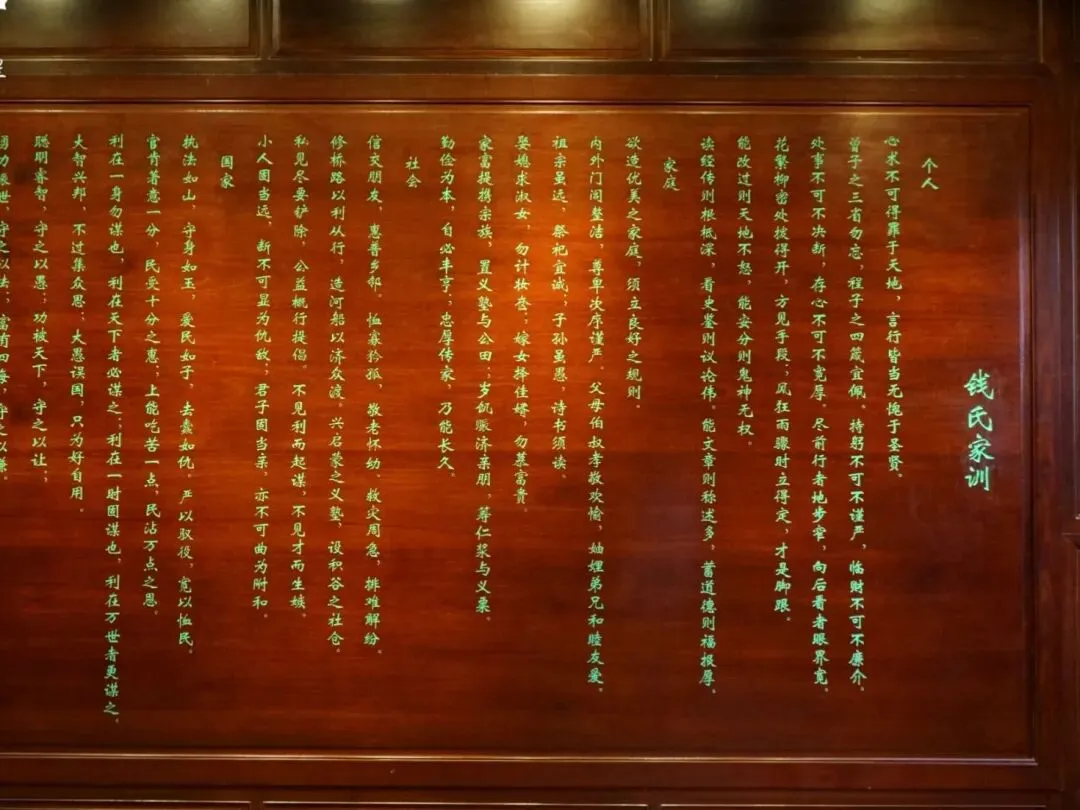 钱氏家训
个人
心术不可得罪于天地，言行皆当无愧于圣贤。
曾子之三省勿忘，程子之四箴宜佩。持躬不可不谨严，临财不可不廉介。
处事不可不决断，存心不可不宽厚。尽前行者地步窄，向后看者眼界宽。
花繁柳密处拨得开，方见手段；风狂雨骤时立得定，才是脚跟。
能改过则天地不怒，能安分则鬼神无权。
读经传则根柢深，看史鉴则议论伟。能文章则称述多，蓄道德则福报厚。
家庭
欲造优美之家庭，须立良好之规则。
内外门闾整洁，尊卑次序谨严。父母伯叔孝敬欢愉，妯娌弟兄和睦友爱。
祖宗虽远，祭祀宜诚；子孙虽愚，诗书须读。
娶媳求淑女，勿计妆奁；嫁女择佳婿，勿慕富贵。
家富提携宗族，置义塾与公田；岁饥赈济亲朋，筹仁浆与义粟。
勤俭为本，自必丰亨；忠厚传家，乃能长久。
社会
信交朋友，惠普乡邻。恤寡矜孤，敬老怀幼。救灾周急，排难解纷。
修桥路以利从行，造河船以济众渡。兴启蒙之义塾，设积谷之社仓。
私见尽要铲除，公益概行提倡。不见利而起谋，不见才而生嫉。
小人固当远，断不可显为仇敌；君子固当亲，亦不可曲为附和。
国家
执法如山，守身如玉，爱民如子，去蠹如仇。严以驭役，宽以恤民。
官肯著意一分，民受十分之惠；上能吃苦一点，民沾万点之恩。
利在一身勿谋也，利在天下者必谋之；利在一时固谋也，利在万世者更谋之。
大智兴邦，不过集众思；大愚误国，只为好自用。
聪明睿智，守之以愚；功被天下，守之以让；
勇力振世，守之以怯；富有四海，守之以谦。